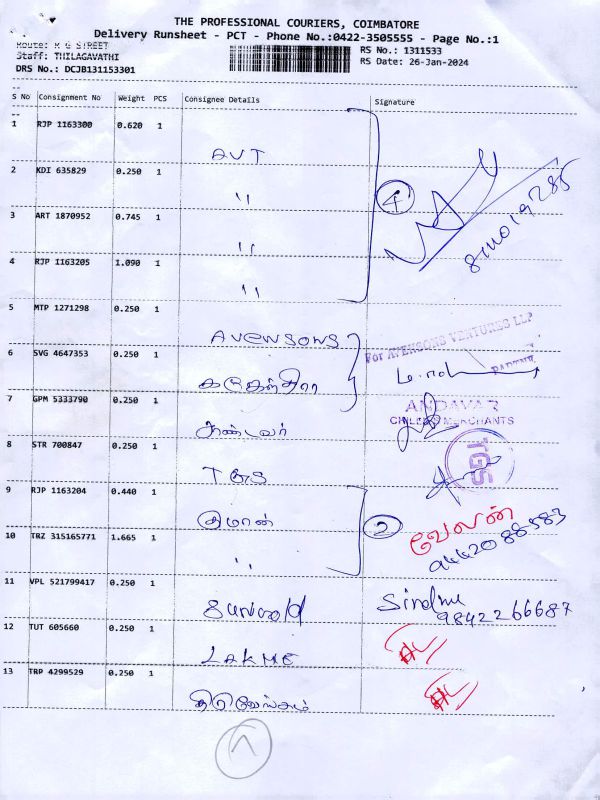 THE PROFESSIONAL COURIERS, COIMBATORE
Delivery Runsheet - PCT - Phone No.:0422-3505555 - Page No.:1
Route: M G STREET
Staff: THILAGAVATHI
DRS No.: DCJB131153301
RS No.: 1311533
RS Date: 26-Jan-2024
S No Consignment No Weight PCS Consignee Details Signature
1 RJP 1163300 0.620 1 AVT
2 KDI 635829 0.250 1 "
4
3 ART 1870952 0.745 1 "
4 RJP 1163205 1.090 1 "
5 MTP 1271298 0.250 1 Avensons
For AVENSONS VENTURES LLP
6 SVG 4647353 0.250 1
7 GPM 5333790 0.250 1 ஆண்டவர்
ANDAVAR
CHILEES MERCHANTS
8 STR 700847 0.250 1 TGS
TGS
9 RJP 1163204 0.440 1
2
வேலன்
10 TRZ 315165771 1.665 1 "
11 VPL 521799417 0.250 1
9842266687
12 TUT 605660 0.250 1 LAKME
13 TRP 4299529 0.250 1